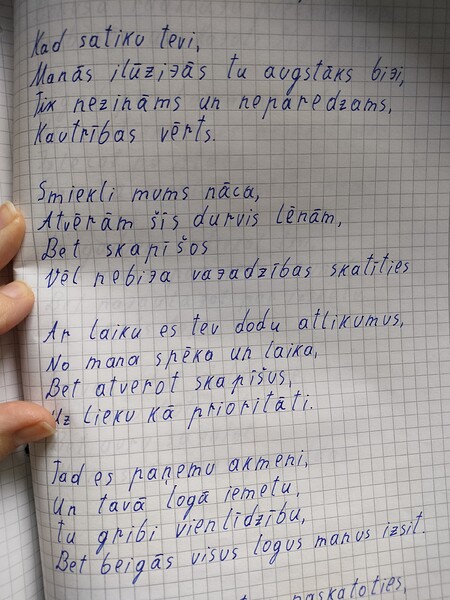 Kad satiku tevi,
Manās ilūzijās tu augstāks biji,
Tik nezināms un neparedzams,
Kautrības vērts.
Smiekli mums nāca,
Atvērām šīs durvis lēnām,
Bet skapīšos
Vēl nebija vajadzības skatīties
Ar laiku es tev dodu atlikumus,
No mana spēka un laika,
Bet atverot skapīšus,
Uz lieku kā prioritāti.
Tad es paņemu akmeni,
Un tavā logā iemetu,
tu gribi vienlīdzību,
Bet beigās visus logus manus izsit.
paskatoties,